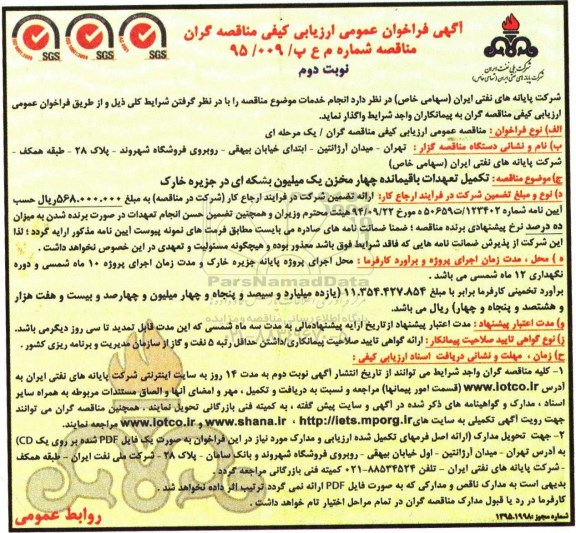 آگهی فراخوان عمومی ارزیابی کیفی مناقصه گران
مناقصه شماره م ع پ/ ۰۰۹/ ۹۵
نوبت دوم
شرکت ملی نفت ایران
شرکت پایانه های نفتی ایران (سهامی خاص)
SGS SGS SGS
شرکت پایانه های نفتی ایران (سهامی خاص) در نظر دارد انجام خدمات موضوع مناقصه را با در نظر گرفتن شرایط کلی ذیل و از طریق فراخوان عمومی
ارزیابی کیفی مناقصه گران به پیمانکاران واجد شرایط واگذار نماید.
الف) نوع فراخوان : مناقصه عمومی ارزیابی کیفی مناقصه گران / یک مرحله ای
ب) نام و نشانی دستگاه مناقصه گزار : تهران - میدان آرژانتین - ابتدای خیابان بیهقی - روبروی فروشگاه شهروند - پلاک ۲۸ - طبقه همکف -
شرکت پایانه های نفتی ایران (سهامی خاص)
ج) موضوع مناقصه: تکمیل تعهدات باقیمانده چهار مخزن یک میلیون بشکه ای در جزیره خارک
د) نوع و مبلغ تضمین شرکت در فرایند ارجاع کار: ارائه تضمین شرکت در فرایند ارجاع کار (شرکت در مناقصه) به مبلغ ۵۶۸.۰۰۰.۰۰۰ریال حسب
آیین نامه شماره ۱۲۳۴۰۲/ت۵۰۶۵۹ه مورخ ۹۴/۰۹/۲۲ هیئت محترم وزیران و همچنین تضمین حسن انجام تعهدات در صورت برنده شدن به میزان
ده درصد نرخ پیشنهادی برنده مناقصه ؛ ضمنا ضمانت نامه های صادره می بایست مطابق فرمت های نمونه پیوست آیین نامه مذکور ارایه گردد ؛ لذا
این شرکت از پذیرش ضمانت نامه هایی که فاقد شرایط فوق باشد معذور بوده و هیچگونه مسئولیت و تعهدی در این خصوص نخواهد داشت .
ه ) محل ، مدت زمان اجرای پروژه و برآورد کارفرما : محل اجرای پروژه پایانه جزیره خارک و مدت زمان اجرای پروژه ۱۰ ماه شمسی و دوره
نگهداری ۱۲ ماه شمسی می باشد .
برآورد تخمینی کارفرما برابر با مبلغ ۱۱.۳۵۴.۴۲۷.۸۵۴ریال (یازده میلیارد و سیصد و پنجاه و چهار میلیون و چهارصد و بیست و هفت هزار
و هشتصد و پنجاه و چهار) ریال می باشد.
و) مدت اعتبار پیشنهاد : مدت اعتبار پیشنهاد از تاریخ ارایه پیشنهاد مالی به مدت سه ماه شمسی که این مدت قابل تمدید تا سی روز دیگر می باشد.
ز) نوع گواهی تایید صلاحیت پیمانکار: ارائه گواهی تایید صلاحیت پیمانکاری/داشتن حداقل رتبه ۵ نفت و گاز از سازمان مدیریت و برنامه ریزی کشور .
ح) زمان ، مهلت و نشانی دریافت اسناد ارزیابی کیفی :
۱- کلیه مناقصه گران واجد شرایط می توانند از تاریخ انتشار آگهی نوبت دوم به مدت ۱۴ روز به سایت اینترنتی شرکت پایانه های نفتی ایران به
آدرس www.iotco.ir (قسمت امور پیمانها) مراجعه و نسبت به دریافت و تکمیل ، مهر و امضای آنها و الصاق مستندات مربوطه به همراه سایر
اسناد ، مدارک و گواهینامه های ذکر شده در آگهی و سایت پیش گفته ، به کمیته فنی بازرگانی تحویل نمایند . همچنین مناقصه گران می توانند
جهت رویت آگهی تکمیلی به سایت های http://iets.mporg.ir ، www.shana.ir و www.iotco.ir مراجعه نمایند.
۲- جهت تحویل مدارک (ارائه اصل فرمهای تکمیل شده ارزیابی و مدارک مورد نیاز در این فراخوان به صورت یک فایل PDF شده بر روی یک CD)
به آدرس تهران - میدان آرژانتین - اول خیابان بیهقی - روبروی فروشگاه شهروند و بانک سامان - پلاک ۲۸ - شرکت ملی نفت ایران - طبقه همکف
- شرکت پایانه های نفتی ایران - تلفن ۸۸۵۳۴۵۲۴-۰۲۱ کمیته فنی بازرگانی مراجعه گردد .
بدیهی است به مدارک ناقص و مدارکی که به صورت فایل PDF ارائه نمی گردد ترتیب اثر داده نخواهد شد .
کارفرما در رد یا قبول مدارک مناقصه گران در تمام مراحل اختیار تام خواهد داشت .
شماره مجوز :۱۳۹۵.۱۹۹۸
روابط عمومی
ParsNamadData
پایگاه اطلاع رسانی مناقصه و مزایده